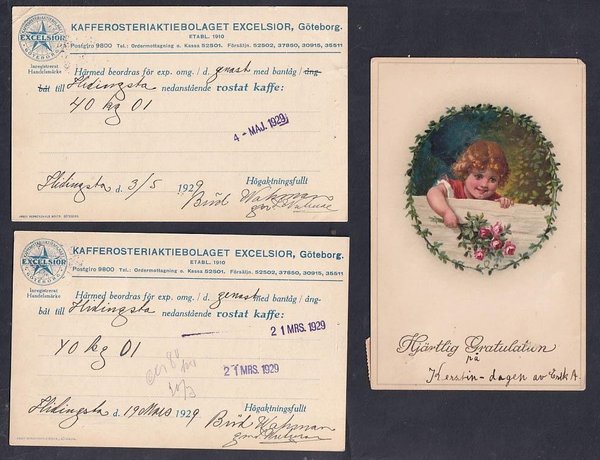 KAFFEROSTERIAKTIEBOLAGET EXCELSIOR, Göteborg.
ETABL. 1910
Postgiro 9800 Tel.: Ordermottagning o. Kassa 52501. Försäljn. 52502, 37850, 30915, 35511
EXCELSIOR
GÖTEBORG
Inregistrerat
Handelsmärke
Härmed beordras för exp. omg. / d. genast med bantåg / ång-
båt till Hidingsta nedanstående rostat kaffe:
40 kg 01
4 - MAJ. 1929
Hidingsta d. 3/5 1929
Högaktningsfullt
KAFFEROSTERIAKTIEBOLAGET EXCELSIOR, Göteborg.
ETABL. 1910
Postgiro 9800 Tel.: Ordermottagning o. Kassa 52501. Försäljn. 52502, 37850, 30915, 35511
EXCELSIOR
GÖTEBORG
Inregistrerat
Handelsmärke
Härmed beordras för exp. omg. / d. genast med bantåg / ång-
båt till Hidingsta nedanstående rostat kaffe:
21 MRS. 1929
40 kg 01
21 MRS. 1929
Hidingsta d. 19 Mars 1929
Högaktningsfullt
Hjärtlig Gratulation
på
Kerstin-dagen av Erik A